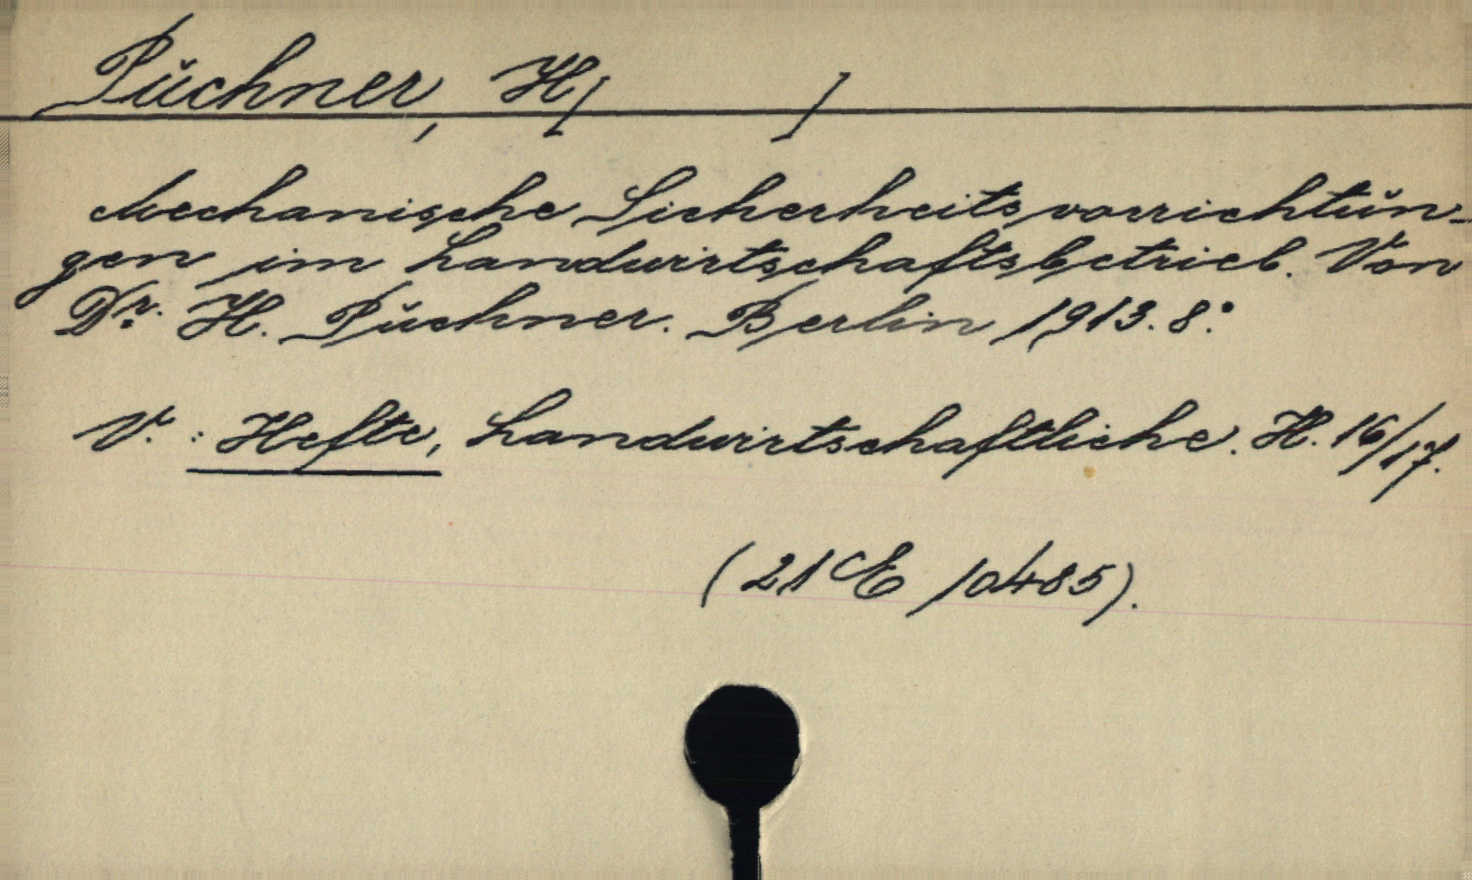 Puchner, H[ ]
Mechanische Sicherheitsvorrichtun-
gen im Landwirtschaftsbetrieb. Von
Dr. H. Puchner. Berlin 1913. 8°.
V.: Hefte, Landwirtschaftliche. H. 16/17.
(21 E 10485).